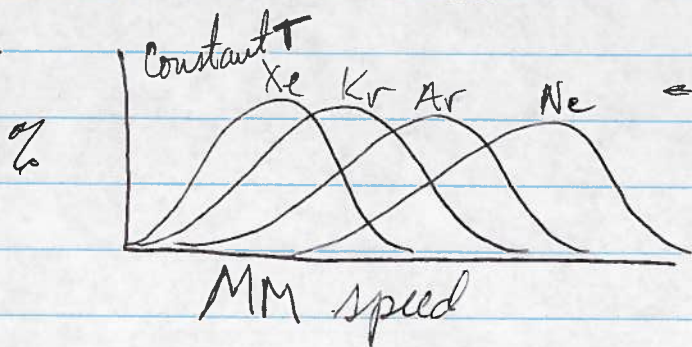 Constant T
Xe Kr Ar Ne
%
MM speed